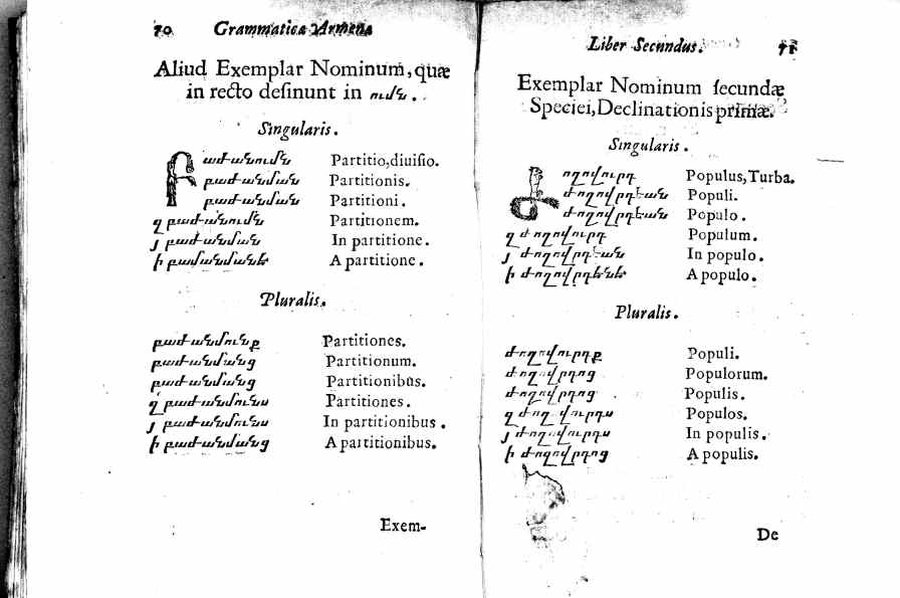 70 Grammatica Armena
Aliud Exemplar Nominum, quæ
in recto desinunt in ումն.
Singularis.
Բաժանումն Partitio,diuisio.
բաժանման Partitionis.
բաժանման Partitioni.
զ բաժանումն Partitionem.
յ բաժանման In partitione.
ի բաժանմանե A partitione.
Pluralis.
բաժանմունք Partitiones.
բաժանմանց Partitionum.
բաժանմանց Partitionibus.
զ բաժանմունս Partitiones.
յ բաժանմունս In partitionibus.
ի բաժանմանց A partitionibus.
Exem-
Liber Secundus. 71
Exemplar Nominum ſecundæ
Speciei,Declinationis primæ.
Singularis.
Ժողովուրդ Populus,Turba.
ժողովրդեան Populi.
ժողովրդեան Populo.
զ ժողովուրդ Populum.
յ ժողովրդեան In populo.
ի ժողովրդենե A populo.
Pluralis.
ժողովուրդք Populi.
ժողովրդոց Populorum.
ժողովրդոց Populis.
զ ժողովուրդս Populos.
յ ժողովուրդս In populis.
ի ժողովրդոց A populis.
De